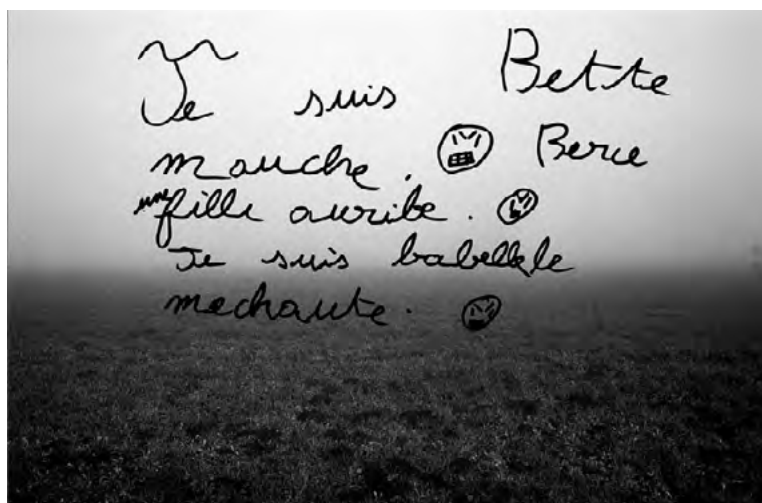 Je suis Bette
mauche. Berce
une fille auribe.
Je suis babellele
mechante.